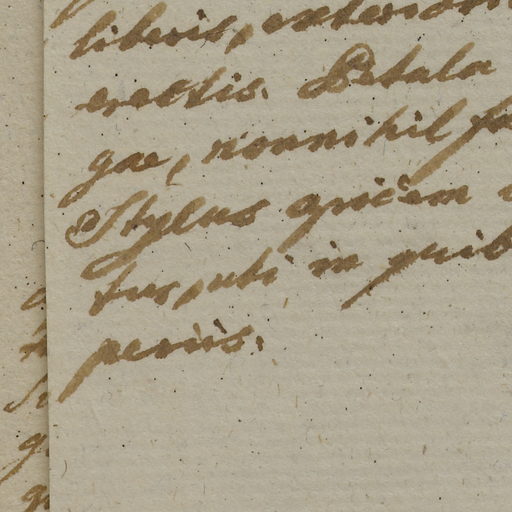 liberis, exterior
erectis. Petala
gae, nonnihil
Stylus quidem
tus, uti in quib
periis.